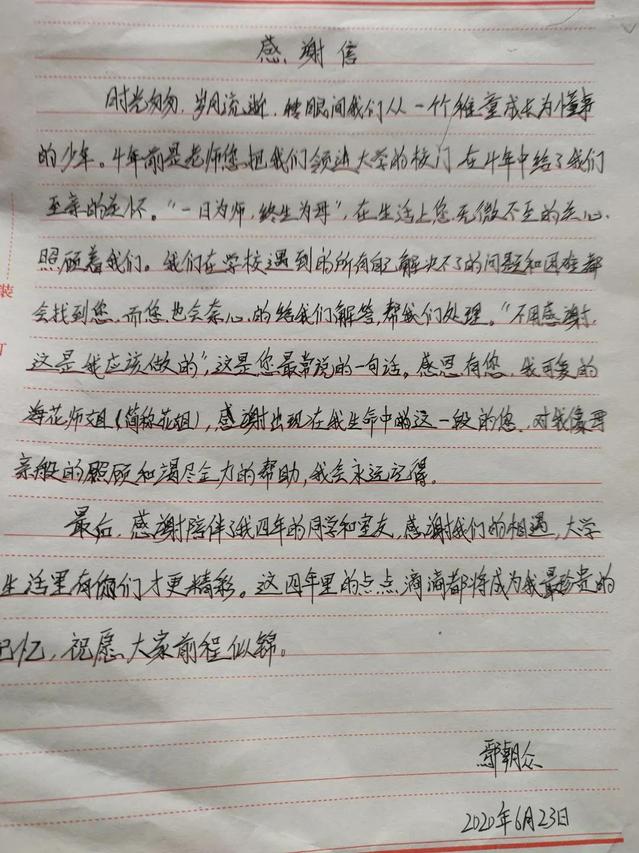 感谢信
时光匆匆，岁月流逝，转眼间我们从一个稚童成长为懂事
的少年。4年前是老师您把我们领进大学的校门，在4年中给了我们
至亲的关怀。“一日为师，终生为母”，在生活上您无微不至的关心
照顾着我们。我们在学校遇到的所有自己解决不了的问题和困难都
会找到您，而您也会奈心的给我们解答，帮我们处理。“不用感谢，
这是我应该做的”，这是您最常说的一句话。感恩有您，我可爱的
海花师姐（简称花姐），感谢出现在我生命中的这一段的您，对我像母
亲般的照顾和竭尽全力的帮助，我会永远记得。
最后，感谢陪伴了我四年的同学和室友，感谢我们的相遇，大学
生活里有你们才更精彩。这四年里的点点滴滴都将成为我最珍贵的
记忆，祝愿大家前程似锦。
鄢朝众
2020年6月23日
装
订